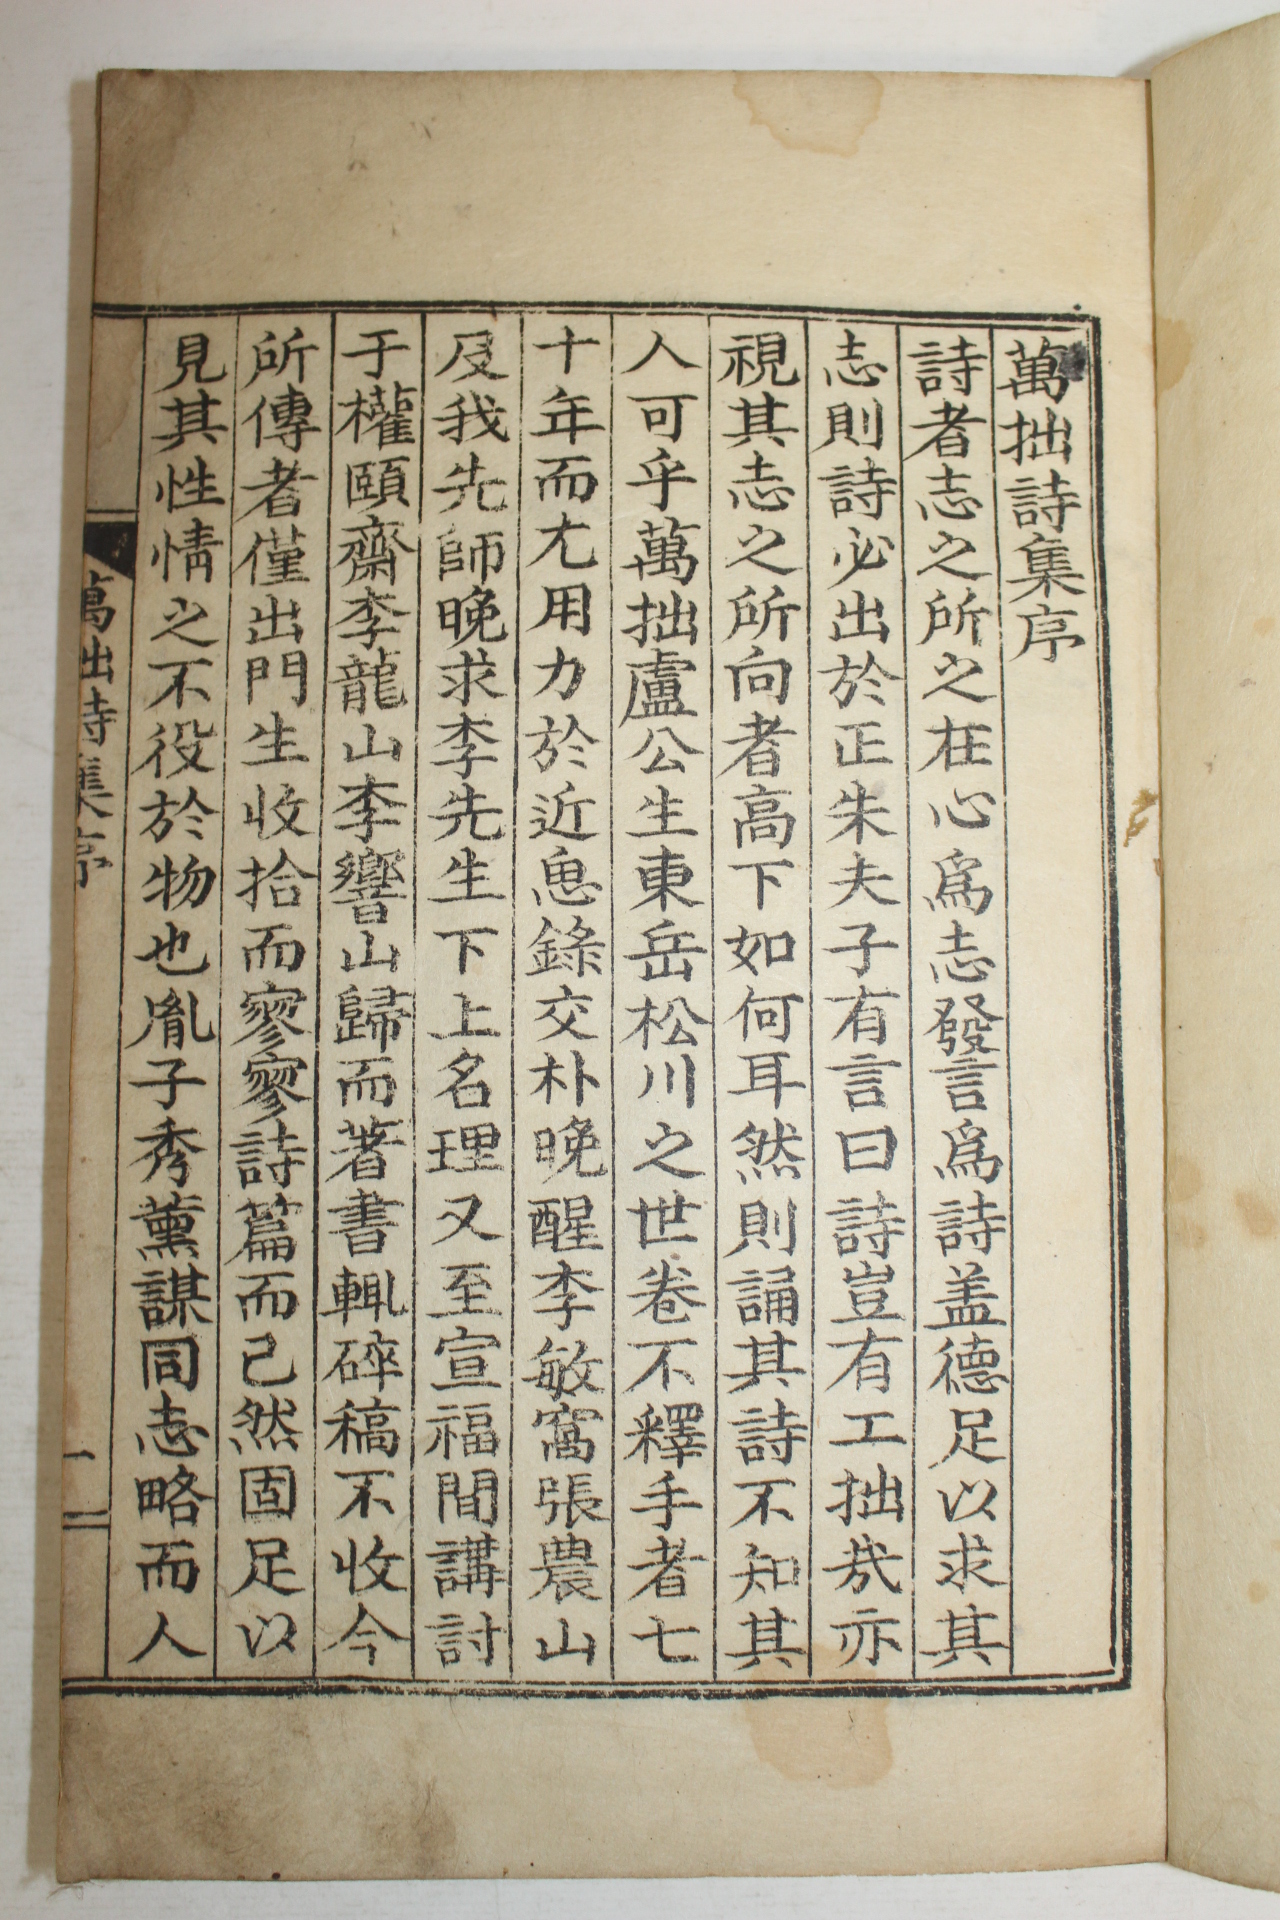 萬拙詩集序
詩者志之所之在心爲志發言爲詩盖德足以求其
志則詩必出於正朱夫子有言曰詩豈有工拙㢤亦
視其志之所向者高下如何耳然則誦其詩不知其
人可乎萬拙盧公生東岳松川之世卷不釋手者七
十年而尤用力於近思錄交朴晚醒李敏窩張農山
及我先師晚求李先生下上名理又至宣福間講討
于權頤齋李龍山李響山歸而著書輒碎稿不收今
所傳者僅出門生收拾而寥寥詩篇而已然固足以
見其性情之不役於物也胤子秀薰謀同志略而人
萬拙詩集序
一